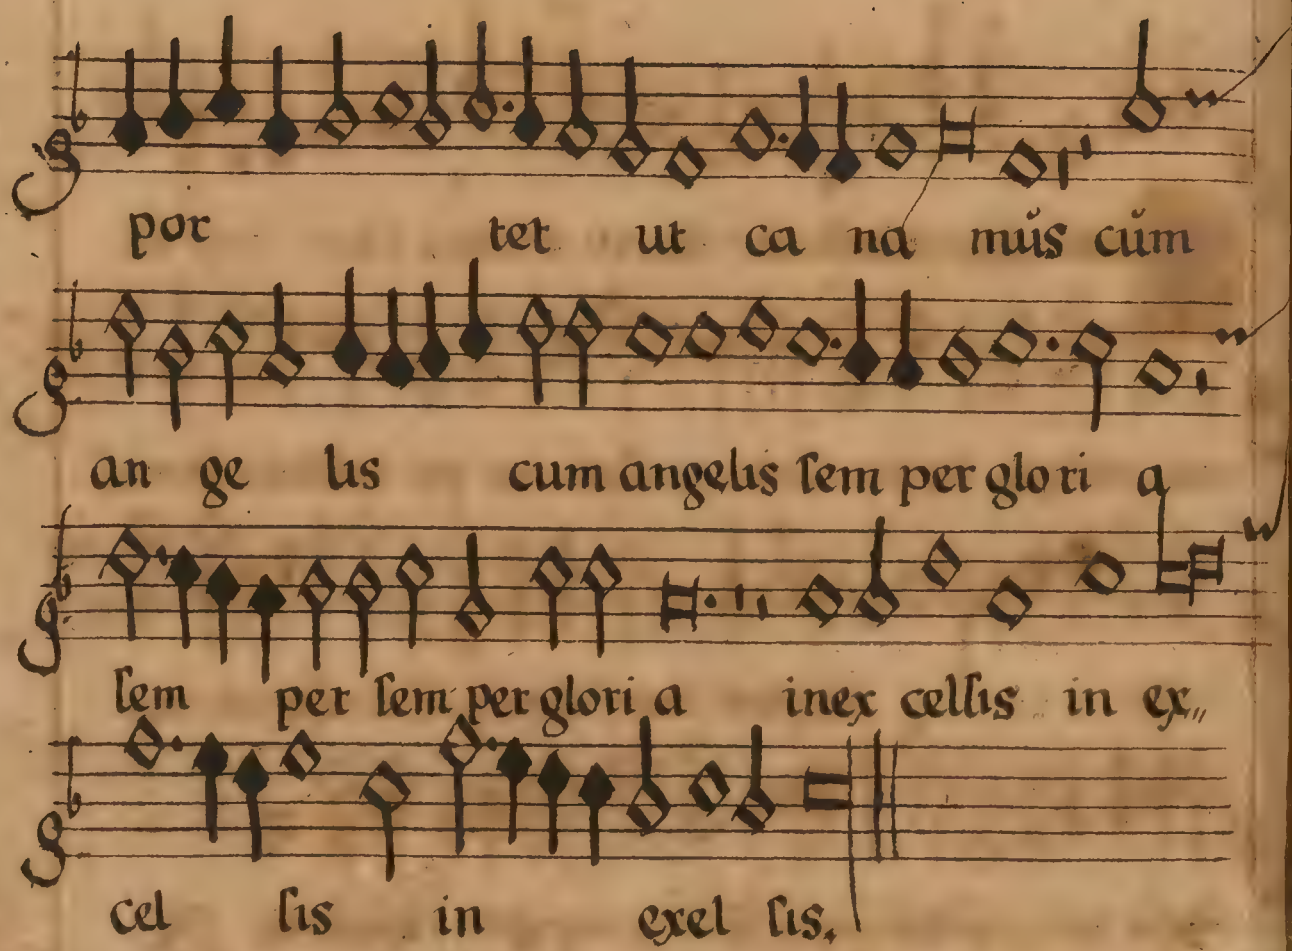 por tet ut ca na mus cum
an ge lis cum angelis ſem per glo ri a
ſem per ſem per glori a inex celſis in ex,,
cel ſis in exel ſis.